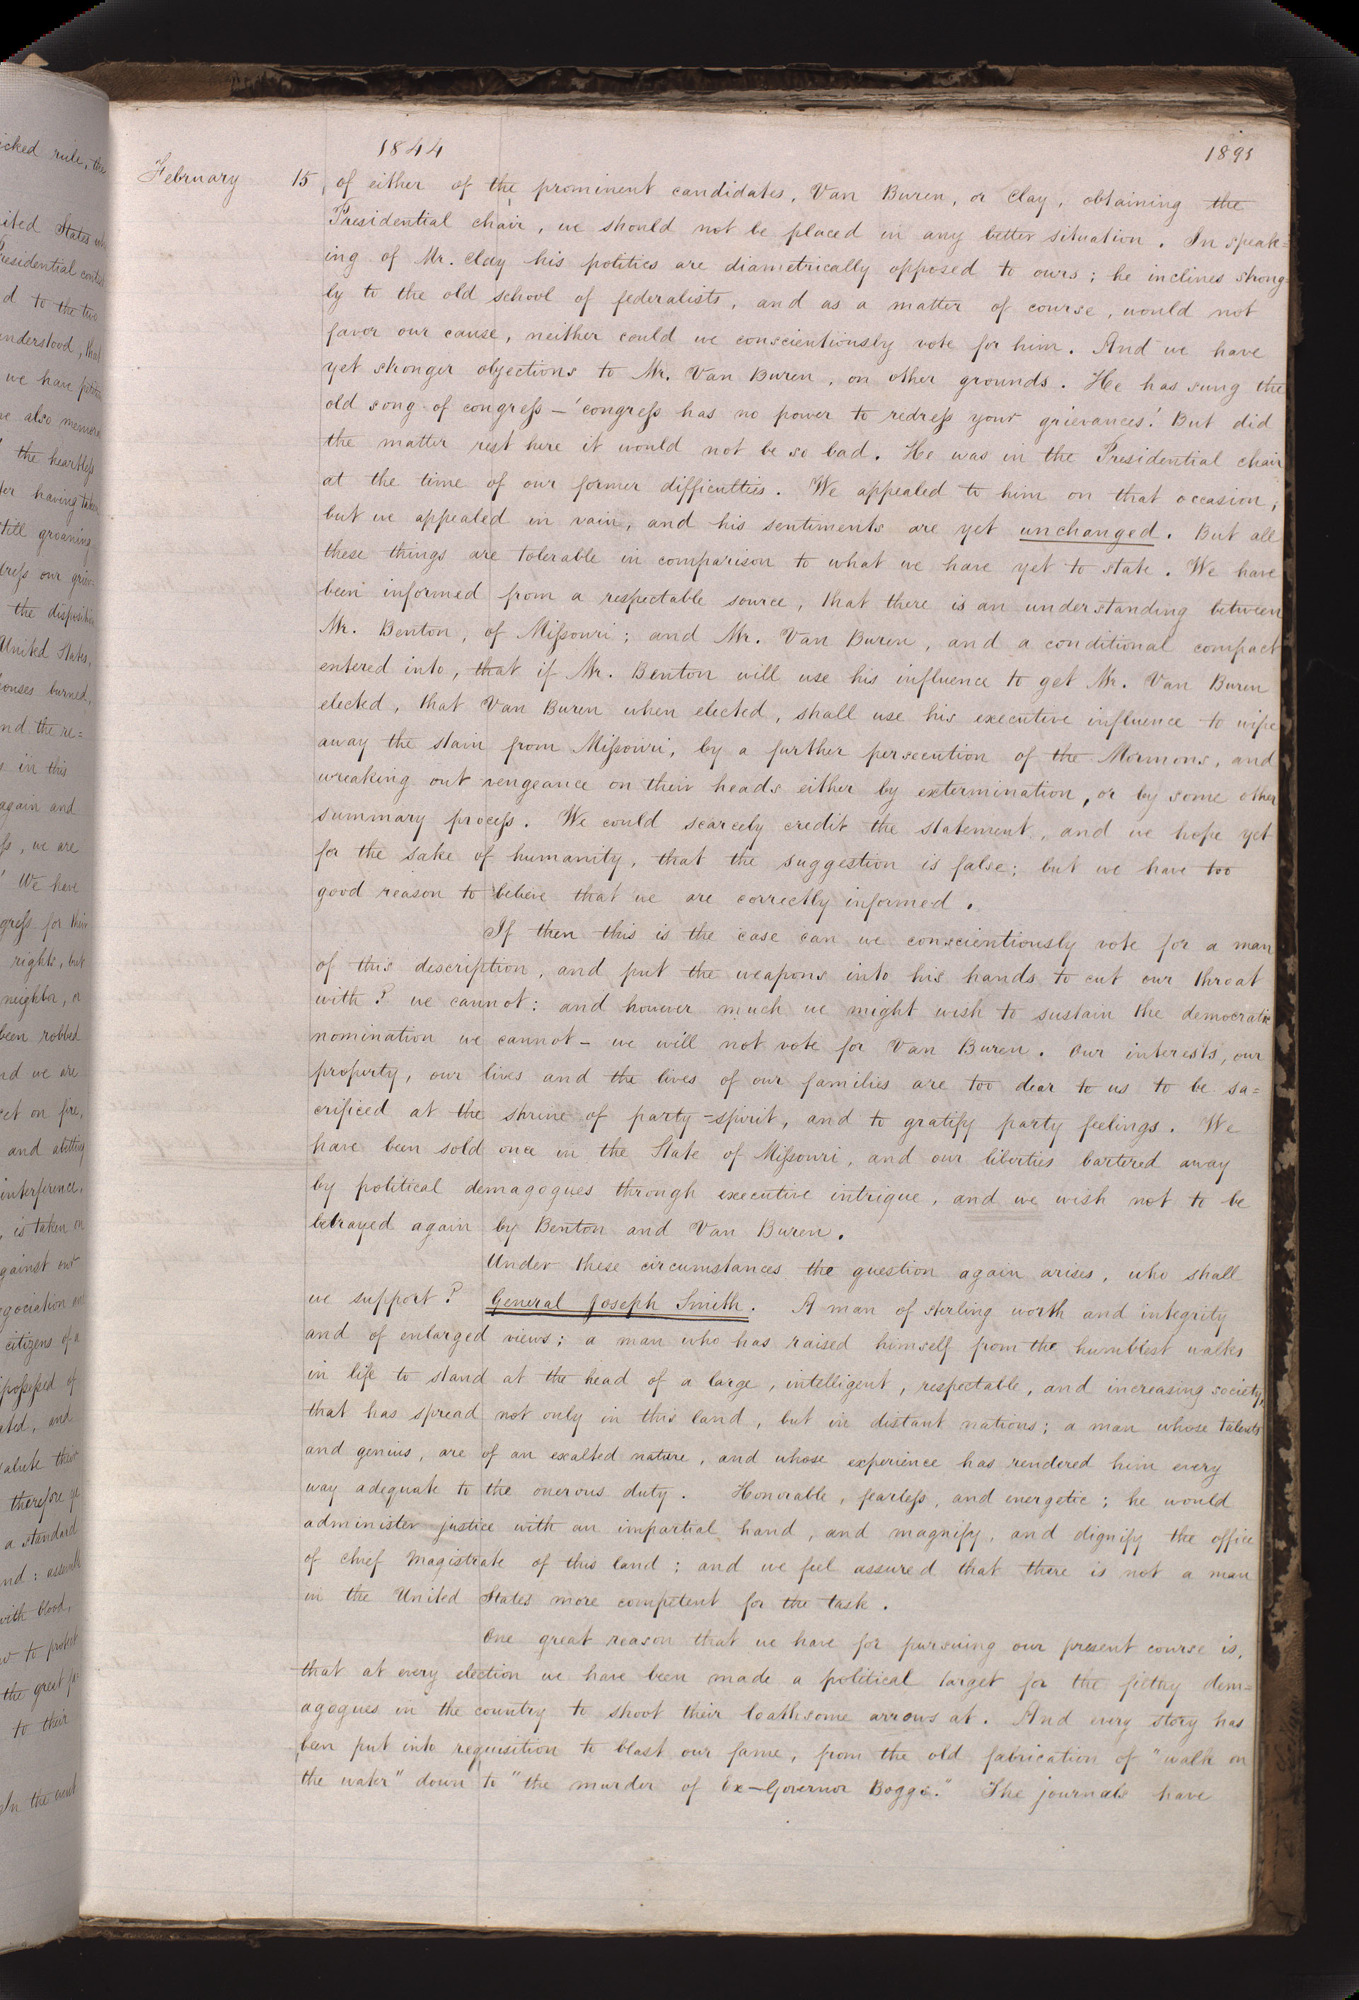 1844
1891
February 15 of either of the prominent candidates, Van Buren, or Clay, obtaining the
Presidential chair, we should not be placed in any better situation. In speak=
ing of Mr. Clay his politics are diametrically opposed to ours; he inclines strong-
ly to the old school of federalists, and as a matter of course, would not
favor our cause, neither could we conscientiously vote for him. And we have
yet stronger objections to Mr. Van Buren, on other grounds. He has sung the
old song of congress — 'congress has no power to redress your grievances.' But did
the matter rest here it would not be so bad. He was in the Presidential chair
at the time of our former difficulties. We appealed to him on that occasion,
but we appealed in vain, and his sentiments are yet unchanged. But all
these things are tolerable in comparison to what we have yet to state. We have
been informed from a respectable source, that there is an understanding between
Mr. Benton, of Missouri; and Mr. Van Buren, and a conditional compact
entered into, that if Mr. Benton will use his influence to get Mr. Van Buren
elected, that Van Buren when elected, shall use his executive influence to wipe
away the stain from Missouri, by a further persecution of the Mormons, and
wreaking out vengeance on their heads either by extermination, or by some other
summary process. We could scarcely credit the statement, and we hope yet
for the sake of humanity, that the suggestion is false; but we have too
good reason to believe that we are correctly informed.
If then this is the case can we conscientiously vote for a man
of this description, and put the weapons into his hands to cut our throat
with? we cannot: and however much we might wish to sustain the democratic
nomination we cannot - we will not vote for Van Buren. Our interests, our
property, our lives and the lives of our families are too dear to us to be sa=
crificed at the shrine of party-spirit, and to gratify party feelings. We
have been sold once in the State of Missouri, and our liberties bartered away
by political demagogues through executive intrigue, and we wish not to be
betrayed again by Benton and Van Buren.
Under these circumstances the question again arises, who shall
we support? General Joseph Smith. A man of sterling worth and integrity
and of enlarged views; a man who has raised himself from the humblest walks
in life to stand at the head of a large, intelligent, respectable, and increasing society,
that has spread not only in this land, but in distant nations; a man whose talents
and genius, are of an exalted nature, and whose experience has rendered him every
way adequate to the onerous duty. Honorable, fearless, and energetic; he would
administer justice with an impartial hand, and magnify, and dignify the office
of chief Magistrate of this land; and we feel assured that there is not a man
in the United States more competent for the task.
One great reason that we have for pursuing our present course is,
that at every election we have been made a political target for the filthy dem=
agogues in the country to shoot their loathsome arrows at. And every story has
been put into requisition to blast our fame, from the old fabrication of "walk on
the water" down to "the murder of Ex-Governor Boggs." The journals have